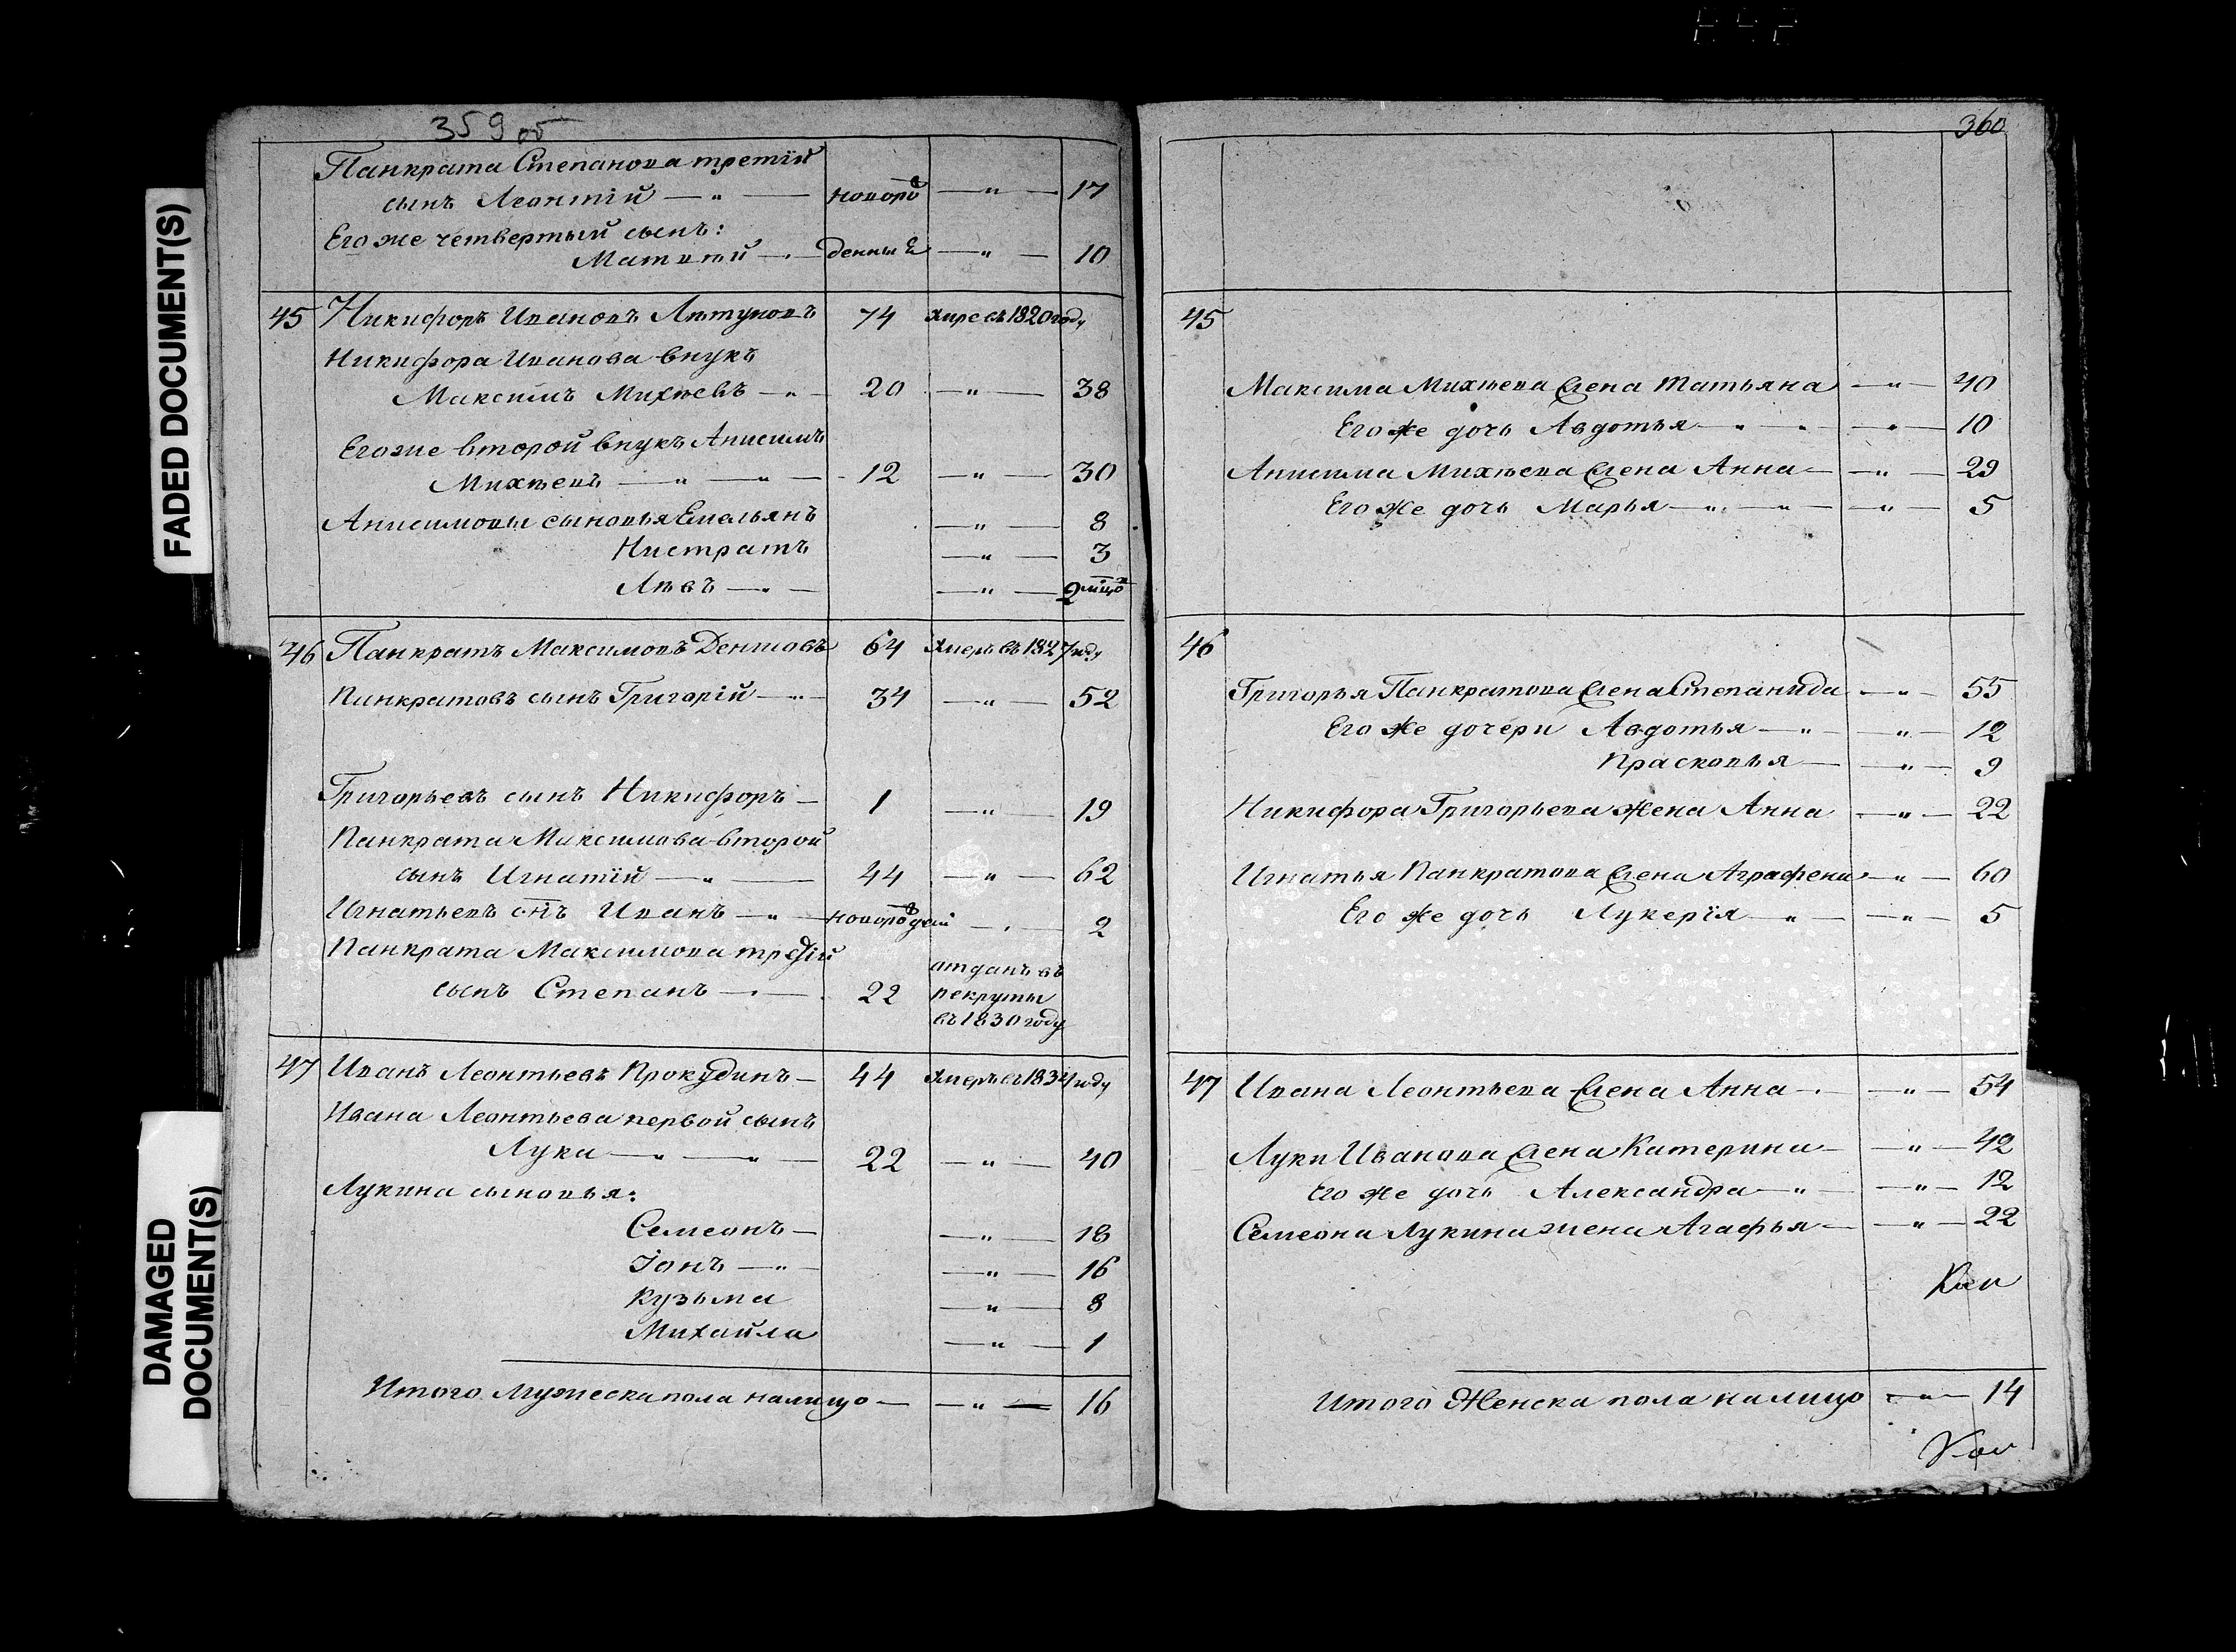 359 об
Панкрата Степанова третій
сынъ Леонтій — „ — новоро — „ — 17
Его же четвертый сынъ:
Матвей — „ — денные — „ — 10
45 Никифоръ Ивановъ 74 умре въ 1820 году
Никифора Иванова внукъ
Максимъ Михѣевъ — „ — 20 — „ — 38
Его же второй внукъ Анисимъ
Михѣевъ — „ — „ — 12 — „ — 30
Анисимовы сыновья Емельянъ — „ — 8
Нистратъ — „ — 3
Лѣвъ — „ — — „ — 2
46 Панкратъ Максимовъ 64 умеръ въ 1827 году
Панкратовъ сынъ Григорій — „ — 34 — „ — 52
Григорьевъ сынъ Никифоръ — 1 — „ — 19
Панкрата Максимова второй
сынъ Игнатій — „ — 44 — „ — 62
Игнатьевъ снъ Иванъ — „ — — „ — 2
Панкрата Максимова третій
сынъ Степанъ — „ — 22 отданъ въ
рекруты
въ 1830 году
47 Иванъ Леонтьевъ Прокудинъ — 44 умеръ въ 1834 году
Ивана Леонтьева первой сынъ
Лука — „ — „ — 22 — „ — 40
Лукина сыновья:
Семеонъ — — „ — 18
Іонъ — „ — — „ — 16
Кузьма — „ — 8
Михайла — „ — 1
Итого Мужеска пола налицо — — „ — 16
360
45
Максима Михѣева жена Татьяна — „ — 40
Его же дочь Авдотья — „ — „ — 10
Анисима Михѣева жена Анна — — „ — 29
Его же дочь Марья — „ — „ — „ — 5
46
Григорья Панкратова жена Степанида — „ — 55
Его же дочери Авдотья — „ — — „ — 12
Прасковья — — „ — 9
Никифора Григорьева жена Анна — „ — 22
Игнатья Панкратова жена Аграфена — „ — 60
Его же дочь Лукерія — „ — — „ — 5
47 Ивана Леонтьева жена Анна — „ — — „ — 54
Луки Иванова жена Катерина — — „ — 42
Его же дочь Александра — „ — — „ — 12
Семеона Лукина жена Агафья — — „ — 22
Итого Женска пола налицо — „ — 14
FADED DOCUMENT(S)
DAMAGED
DOCUMENT(S)